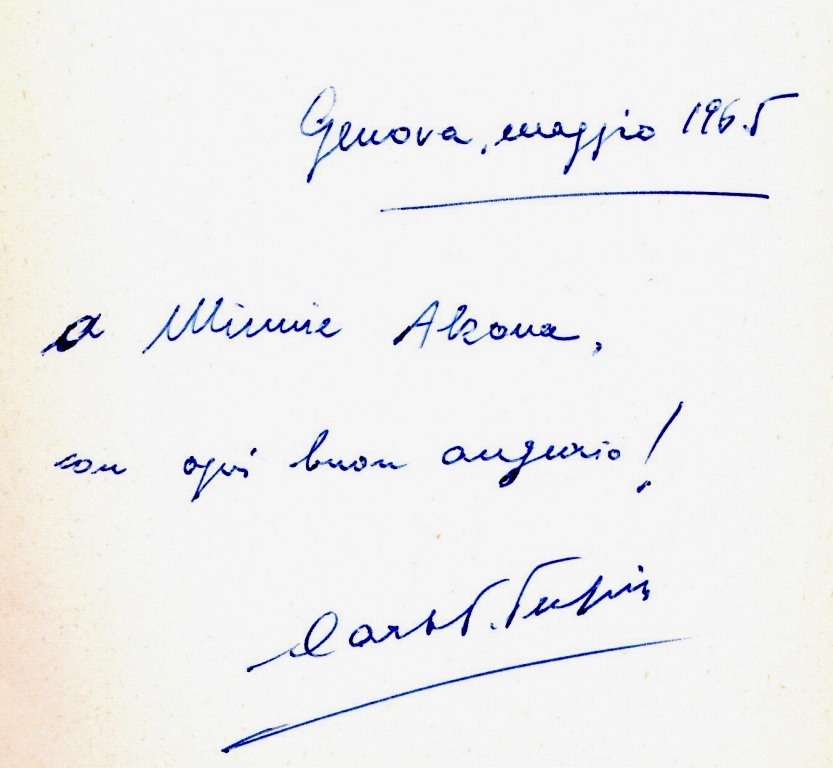 Genova, maggio 1965
a Minnie Alzona,
con ogni buon augurio!
Carlo